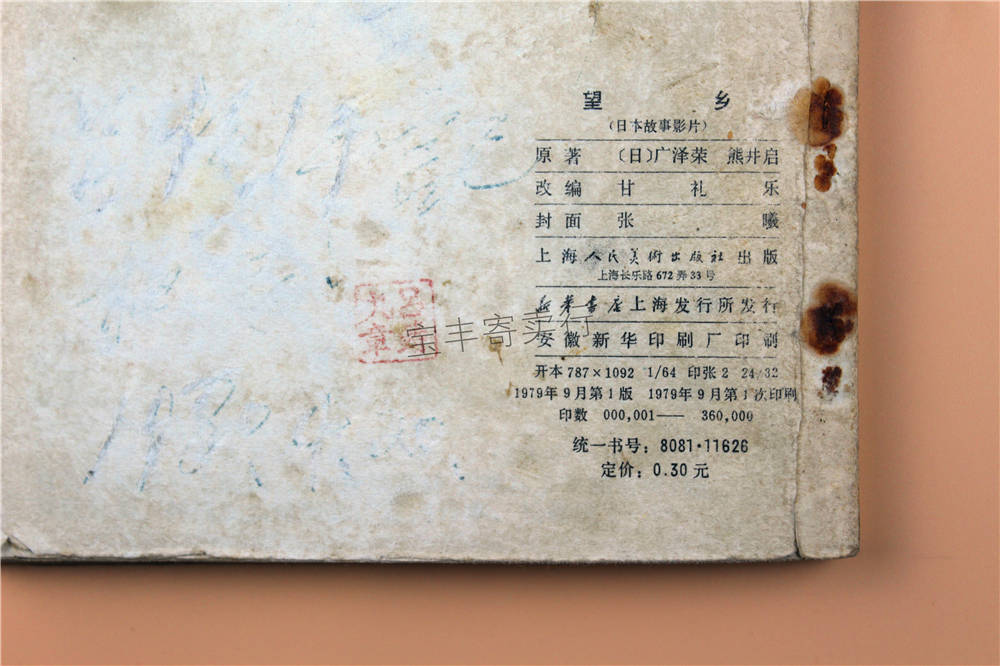 望 乡
（日本故事影片）
原著 〔日〕广泽荣 熊井启
改编 甘礼乐
封面 张曦
上海人民美术出版社出版
上海长乐路672弄33号
新华书店上海发行所发行
安徽新华印刷厂印刷
开本 787×1092 1/64 印张 2 24/32
1979年9月第1版 1979年9月第1次印刷
印数 000,001—— 360,000
统一书号：8081·11626
定价：0.30元
宝丰寄卖行